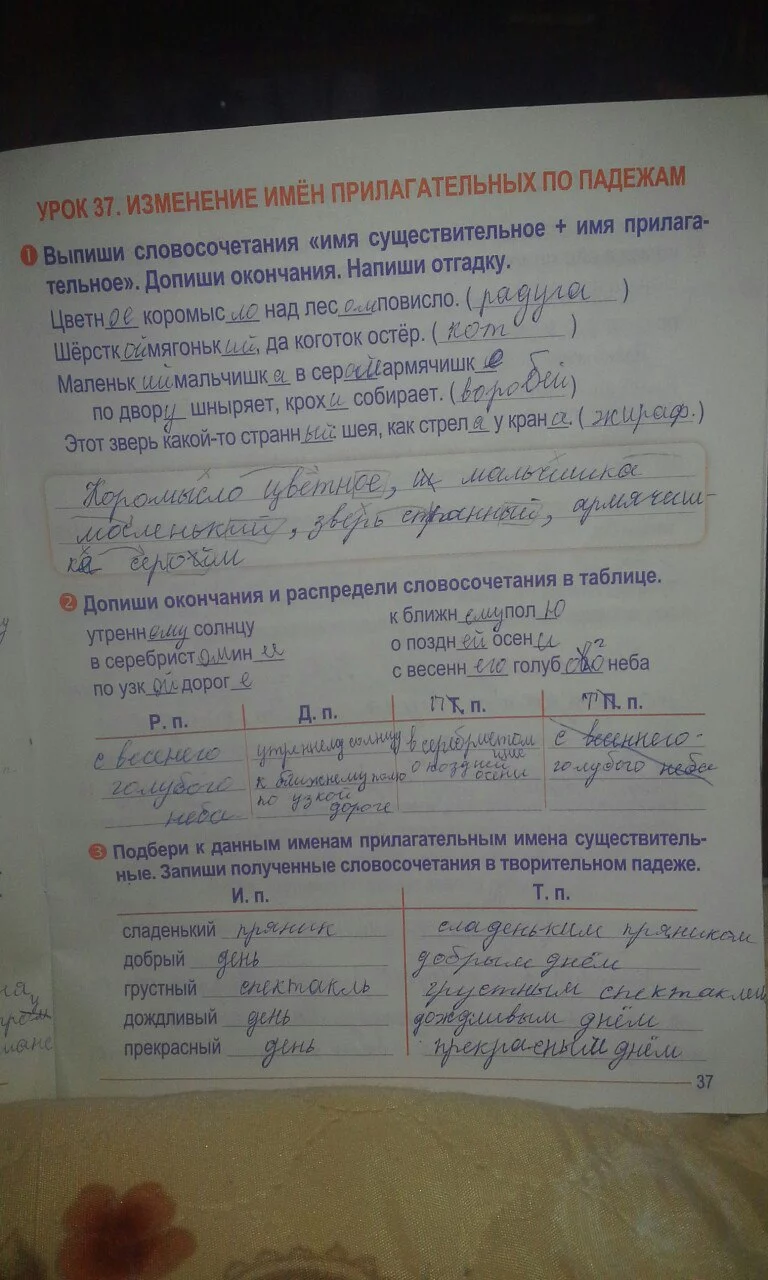 УРОК 37. ИЗМЕНЕНИЕ ИМЁН ПРИЛАГАТЕЛЬНЫХ ПО ПАДЕЖАМ
1 Выпиши словосочетания «имя существительное + имя прилага-
тельное». Допиши окончания. Напиши отгадку.
Цветное коромысло над лесом повисло. (радуга)
Шёрсткой мягонький, да коготок остёр. (кот)
Маленький мальчишка в серой армячишке
по двору шныряет, крохи собирает. (воробей)
Этот зверь какой-то странный шея, как стрела у крана. (жираф.)
Коромысло цветное, мальчишка
маленький, зверь странный, армячиш-
ка серохим
2 Допиши окончания и распредели словосочетания в таблице.
утреннему солнцу к ближнему полю
в серебристом инии о поздней осени
по узкой дороге с весеннего голубого неба
Р. п. Д. п. П. п. Т. п.
с весенего утреннему солнцу в серебристом инии с весеннего
голубого к ближнему полю о поздней осени голубого неба
неба по узкой дороге
3 Подбери к данным именам прилагательным имена существитель-
ные. Запиши полученные словосочетания в творительном падеже.
И. п. Т. п.
сладенький пряник сладеньким пряником
добрый день добрым днём
грустный спектакль грустным спектаклем
дождливый день дождливым днём
прекрасный день прекрасным днём
37